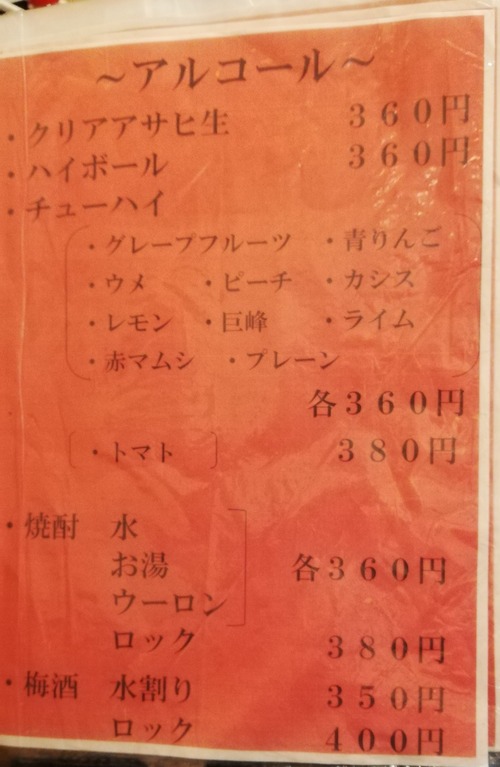 ～アルコール～
・クリアアサヒ生 ３６０円
・ハイボール ３６０円
・チューハイ
・グレープフルーツ ・青りんご
・ウメ ・ピーチ ・カシス
・レモン ・巨峰 ・ライム
・赤マムシ ・プレーン
各３６０円
・トマト ３８０円
・焼酎 水
お湯 各３６０円
ウーロン
ロック ３８０円
・梅酒 水割り ３５０円
ロック ４００円